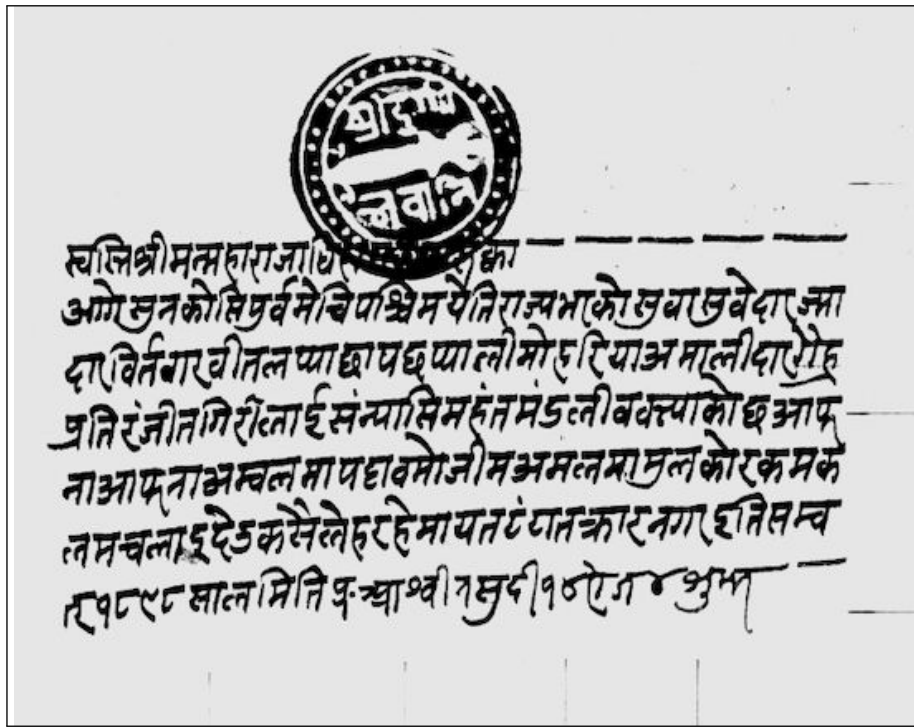 श्रीदुर्गा
भवानि
स्वस्तिश्रीमन्महाराजाधि
आगेसुनकोसिपुर्वमेचिपश्चिमयेतिराज्यभरकोसुवासुवेदारज्मा
दारविर्तवारवीतलप्याछापछप्यालीमोहरियाअमालीदारगैह्र
प्रतिरंजीतगिरीलाईसंन्यासिमहंतमंडलीवक्स्याकोछआफ
नाआफनाअम्वलमापटावमोजीमअमलमामुलकोरकमक
लमचलाइदेउकसैलेहरहेमायतटंटातक्रारनगरइतिसम्व
त्१८९८सालमितिप्र.आश्वीनसुदी१४रोज४शुभम्